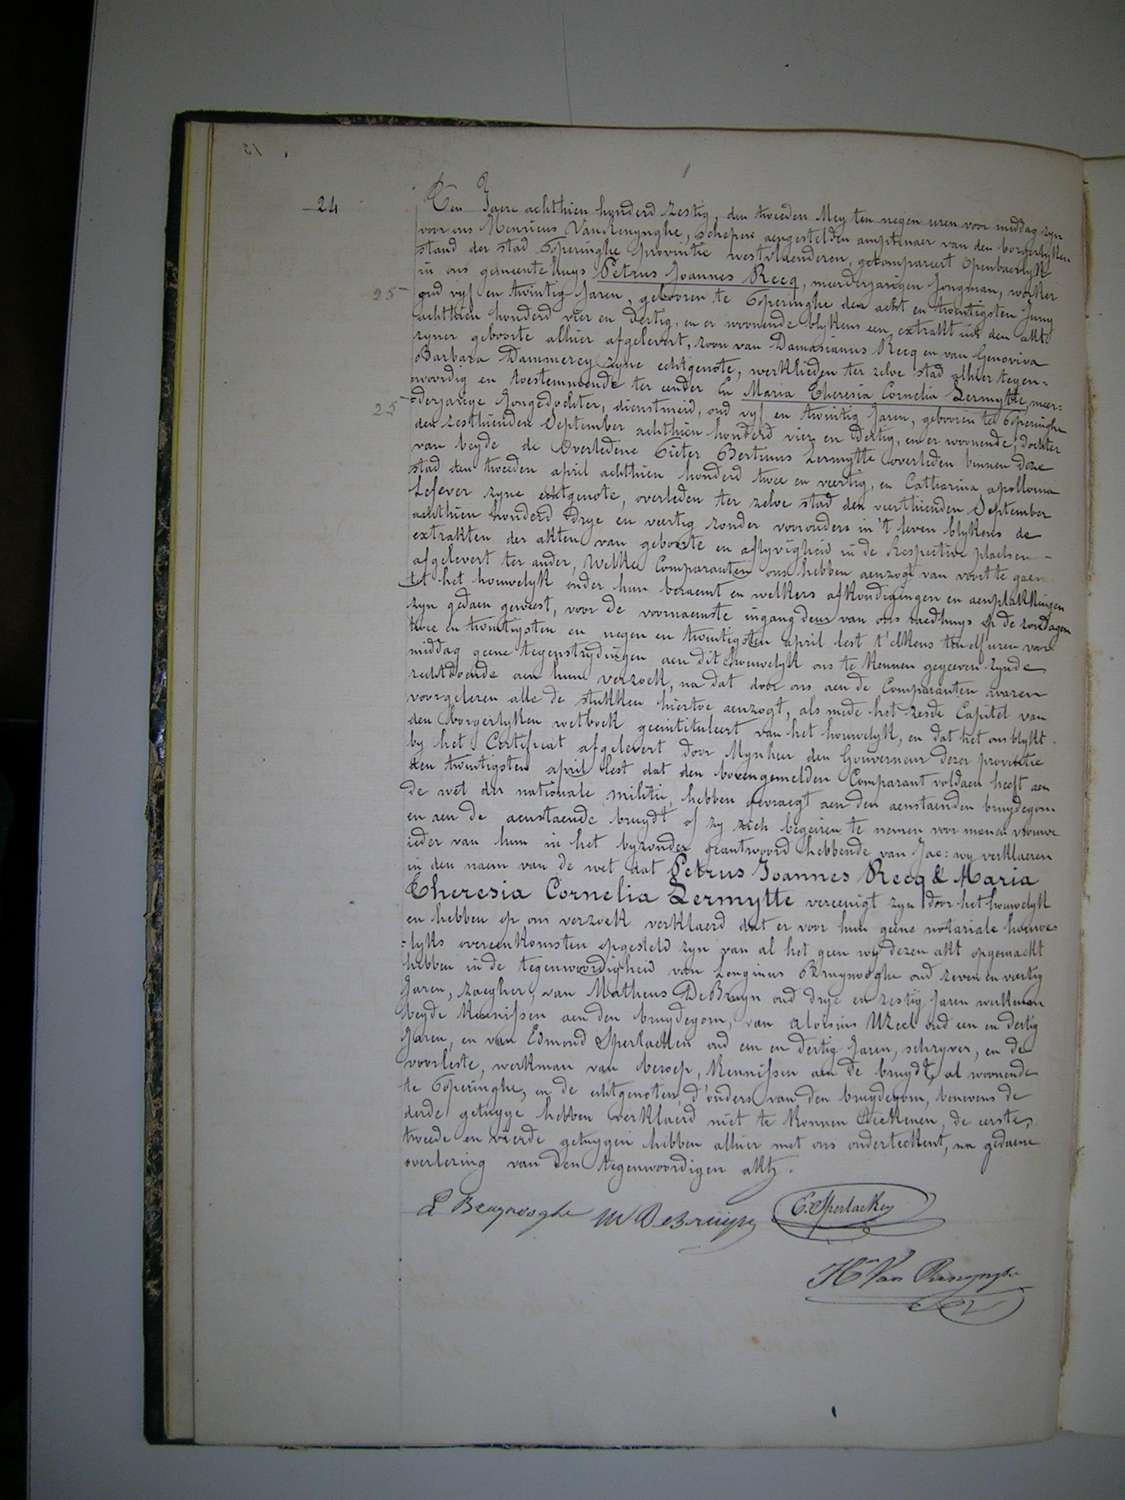 24
Ten Jaere achthien hunderd zestig, den tweeden Mey ten negen uren voor middag zyn
voor ons Henricus Van Renynghe, schepen aengestelden amptenaer van den borgerlyken
stand der stad Poperinghe provintie westvlaenderen, gekompareert openbaerlyk
in ons gemeentehuys Petrus Joannes Recq, meerderjarigen Jongman, werker
25
oud vyf en twintig Jaren, gebooren te Poperinghe den acht en twintigsten Juny
achthien honderd vier en dertig, en er woonende blykens een extrakt uit den akte
zyner geboorte alhier afgelevert, zoon van Damasianus Recq en van Genoviva
Barbara Dammerey zyne echtgenote, werklieden ter zelve stad alhier tegen=
woordig en toestemmende ter eender En Maria Theresia Cornelia Lermytte, meer=
25
derjarige Jongedochter, dienstmeid, oud vyf en twintig Jaren, gebooren te Poperinghe
den zesthienden September achthien honderd vier en dertig, en er woonende, dochter
van beyde de Overledene Pieter Bertinus Lermytte overleden binnen deze
stad den tweeden april achthien honderd twee en veertig, en Catharina apollonia
Lefever zyne echtgenote, overleden ter zelve stad den veerthienden September
achthien honderd drye en veertig zonder voorouders in 't leven blykens de
extrakten der akten van geboorte en aflyvigheid in de respective plaetsen
afgelevert ter ander, Welke Comparanten ons hebben aenzogt van voort te gaen
tot het houwelyk onder hun beraemt en welkers afkondigingen en aenplakkingen
zyn gedaen geweest, voor de voornaemste ingang deur van ons raedhuys op de zondagen
twee en twintigsten en negen en twintigsten april lest t'elkens ten elf uren voor
middag geene tegenstrydingen aen dit houwelyk ons te kennen gegeven zynde
rechtdoende aen hun verzoek, na dat door ons aen de Comparanten waren
voorgelezen alle de stukken hiertoe aenzogt, als mede het zesde Capitel van
den borgerlyken wetboek geeintituleert van het houwelyk, en dat het ons blykt
by het Certificat afgelevert door Mynheer den Gouverneur dezer provintie
den twintigsten april lest dat den bovengemelden Comparant voldaen heeft aen
de wet der nationale militie, hebben gevraegt aen den aenstaenden bruydegom
en aen de aenstaende bruydt of zy zich begeiren te nemen voor man en vrouwe
ieder van hun in het byzonder geantwoord hebbende van Jae: wy verklaeren
in den naem van de wet dat Petrus Joannes Recq & Maria
Theresia Cornelia Lermytte vereenigt zyn door het houwelyk
en hebben op ons verzoek verklaerd dat er voor hun geene notariale houwe=
=lyks overeenkomsten opgesteld zyn van al het geen wy dezen akt opgemaekt
hebben in de tegenwoordigheid van Longinus Bruynooghe oud zeven en veertig
Jaren, zaegher, van Matheus De Bruyn oud drye en zestig Jaren werkman
beyde Kennissen aen den bruydegom, van aloisius Uzeel oud een en dertig
Jaren, en van Edmond Sperlacken oud een en dertig Jaren, schryver, en de
voorleste, werkman van beroep, Kennissen aen de bruydt, al woonende
te Poperinghe, en de echtgenoten d'ouders van den bruydegom, benevens de
derde getuyge hebben verklaerd niet te konnen teekenen, de eerste,
tweede en vierde getuygen hebben alhier met ons onderteekent, na gedaene
overlezing van den tegenwoordigen akt.
L Bruynooghe M DeBruyn E. Sperlacken
Hri Van Renynghe